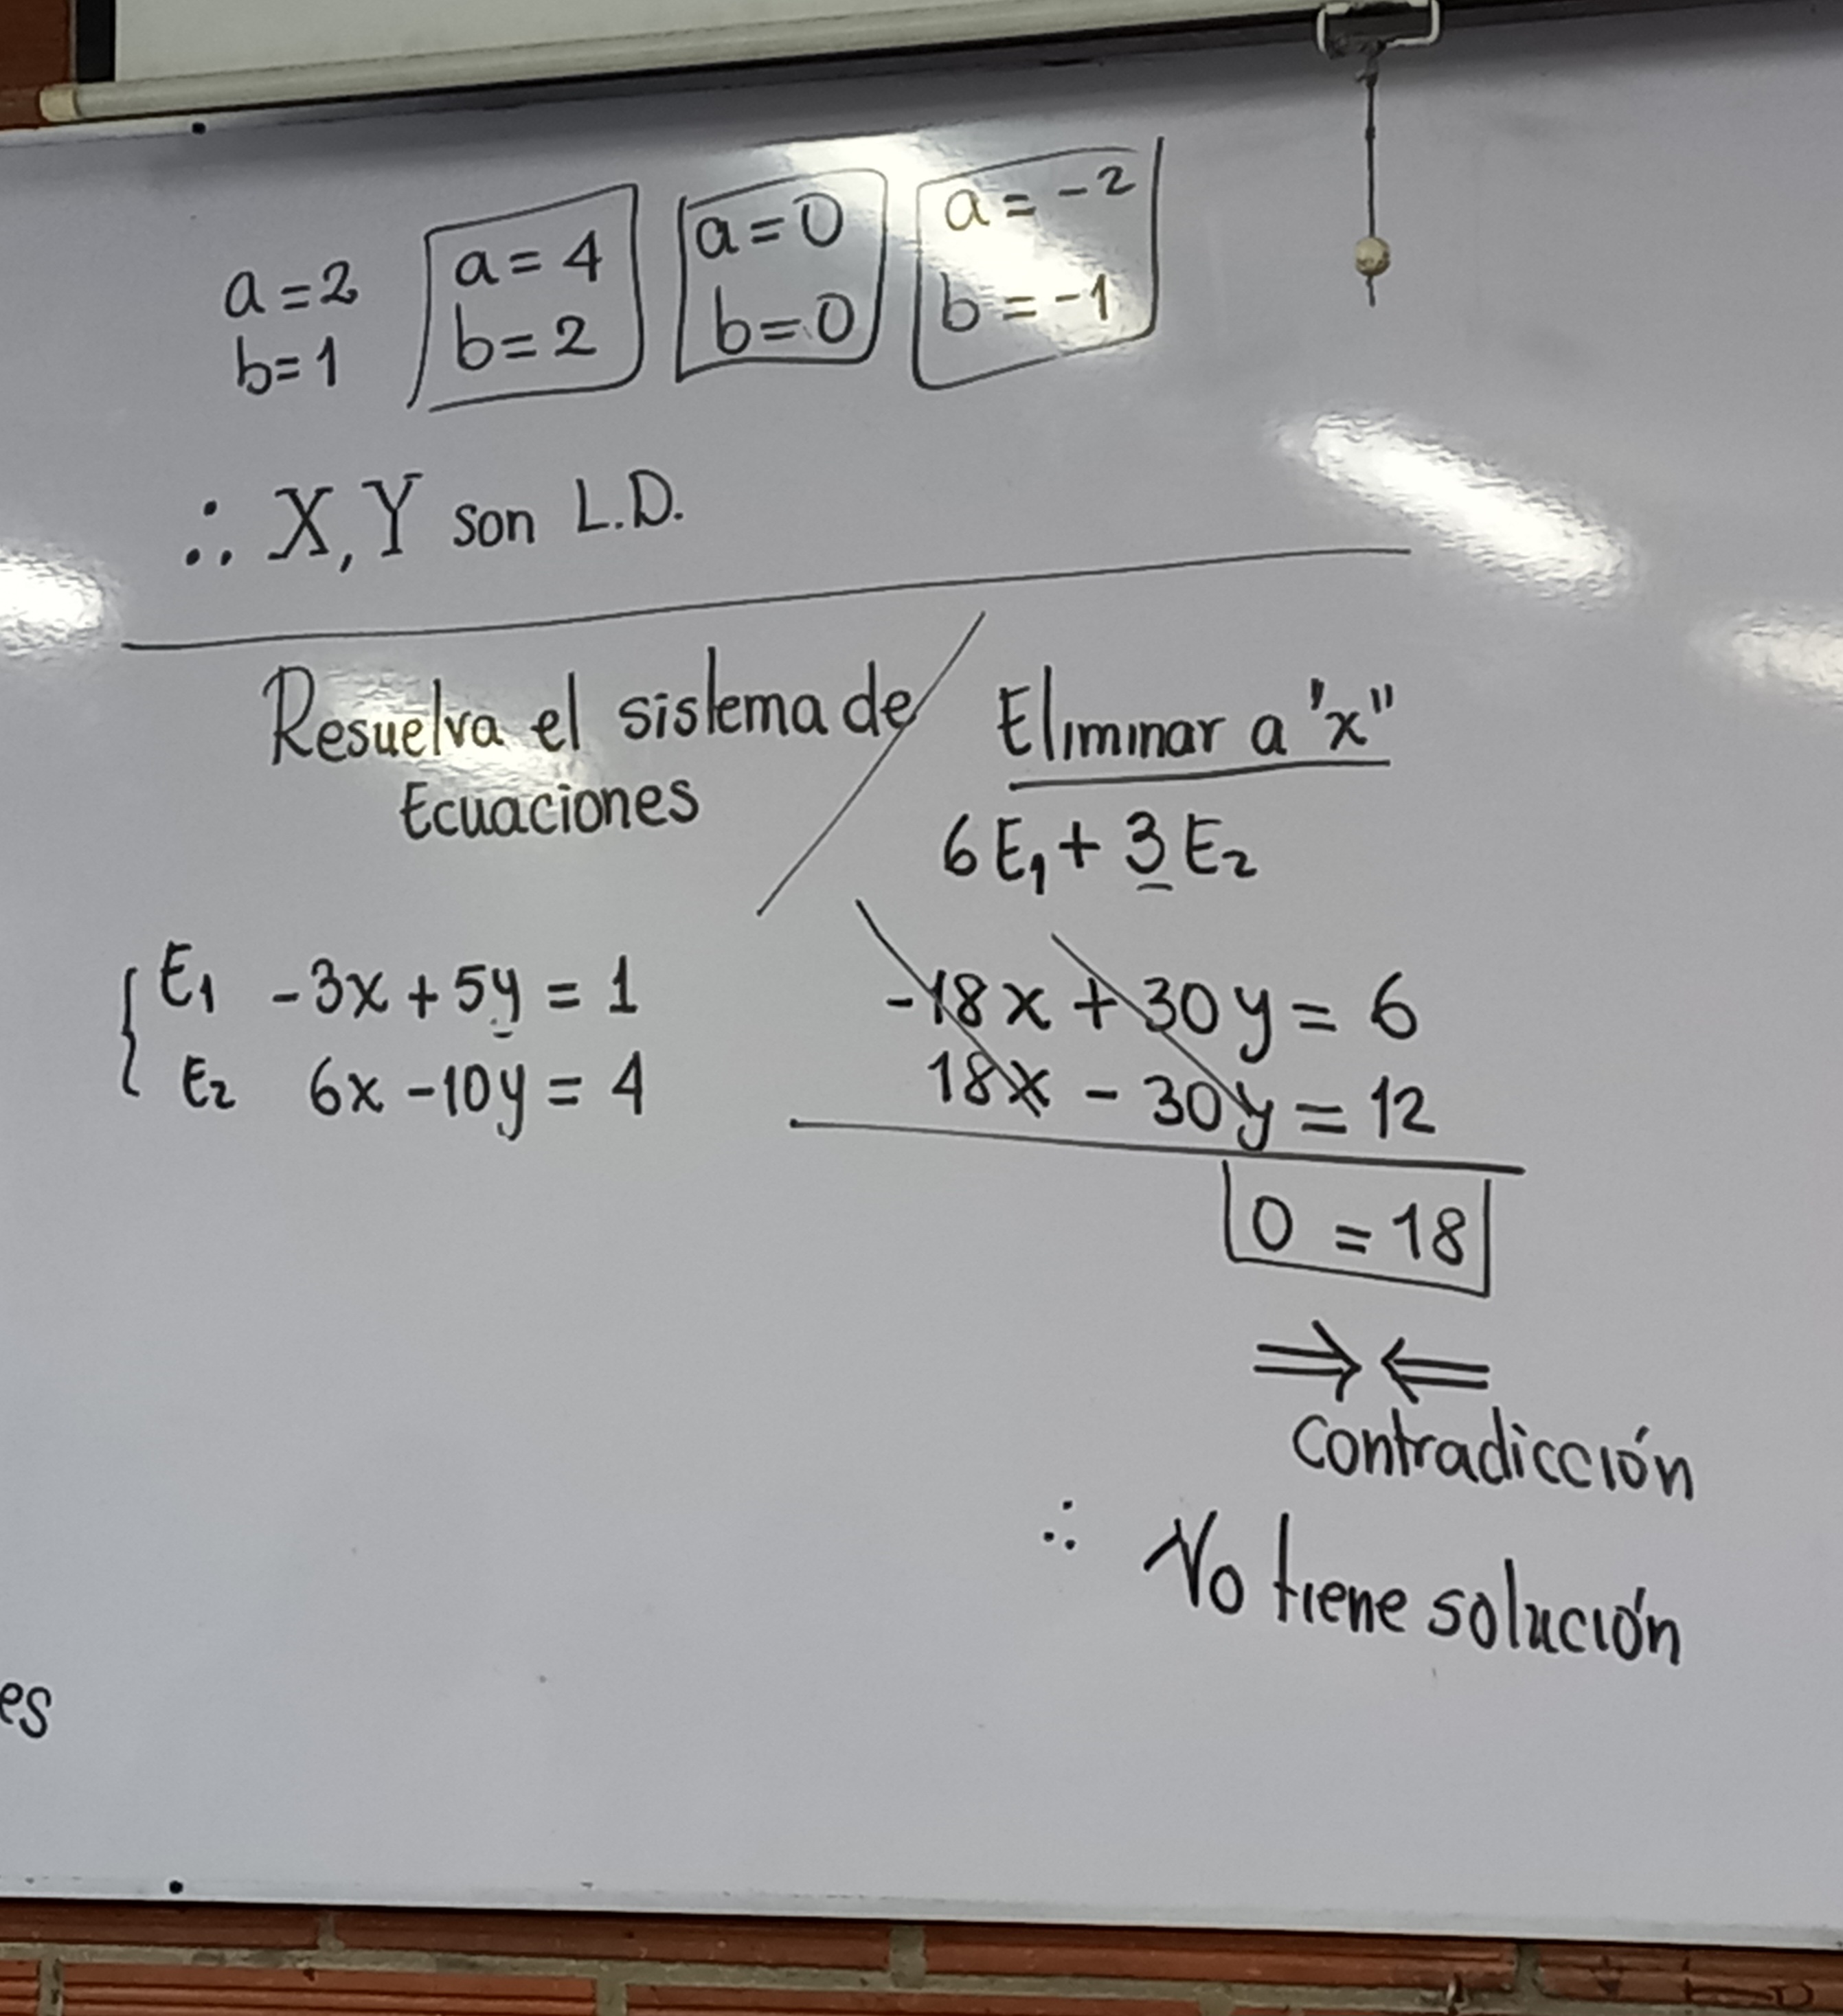 a = 2
b = 1
a = 4
b = 2
a = 0
b = 0
a = -2
b = -1
∴ X, Y son L.D.
Resuelva el sistema de
Ecuaciones
E1 -3x + 5y = 1
E2 6x - 10y = 4
Eliminar a "x"
6E1 + 3E2
-18x + 30y = 6
18x - 30y = 12
0 = 18
⇒⇐
Contradicción
∴ No tiene solución
es